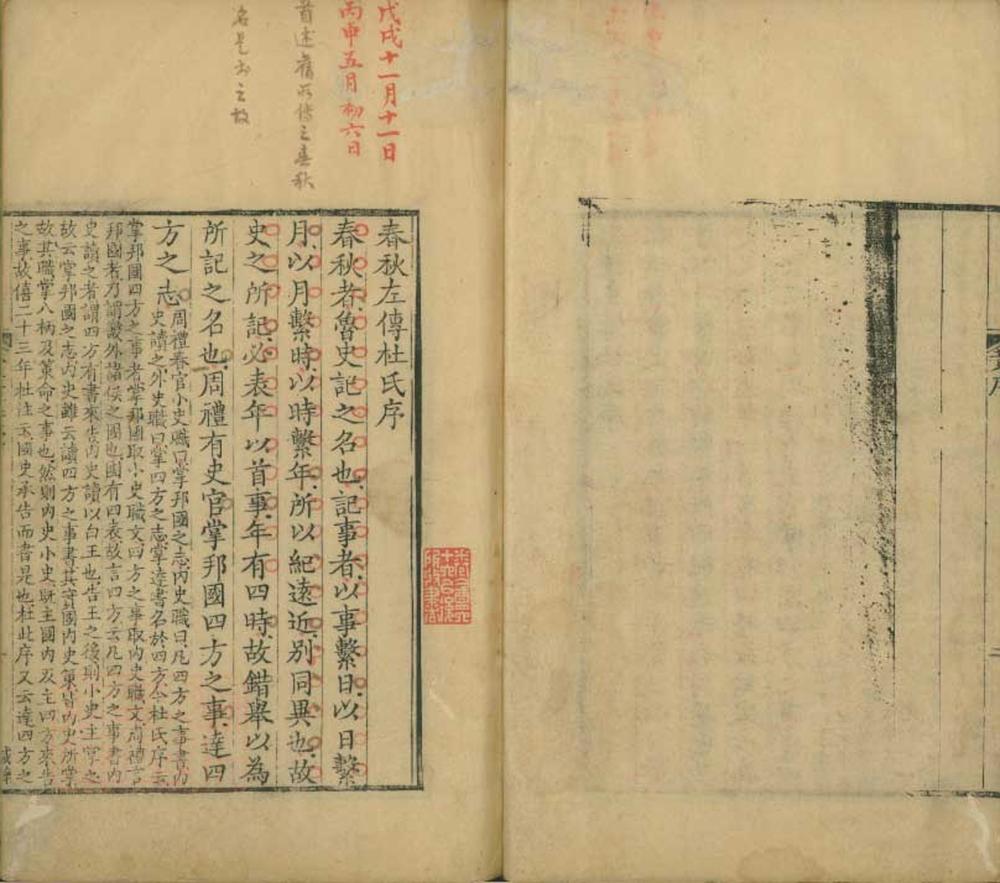 戊戌十一月十一日
丙申五月初六日
首述舊所傳之春秋
名是書之故
春秋左傳杜氏序
春秋者魯史記之名也記事者以事繫日以日繫
月以月繫時以時繫年所以紀遠近別同異也故
史之所記必表年以首事年有四時故錯舉以為
所記之名也周禮有史官掌邦國四方之事達四
方之志周禮春官小史職曰掌邦國之志內史職曰凡四方之事書內
史讀之外史職曰掌四方之志掌達書名於四方今杜氏序云
掌邦國四方之事者掌邦國取小史職文四方之事取內史職文周禮言
邦國者乃謂畿外諸侯之國也國有四表故言四方云凡四方之事書內
史讀之者謂四方有書來告內史讀以白王也告王之後則小史主掌之
故云掌邦國之志內史雖云讀四方之事書其實國內史策皆內史所掌
故其職掌八柄及策命之事也然則內史小史既主國內及主四方來告
之事故僖二十三年杜注云國史承告而書是也杜此序又云達四方之